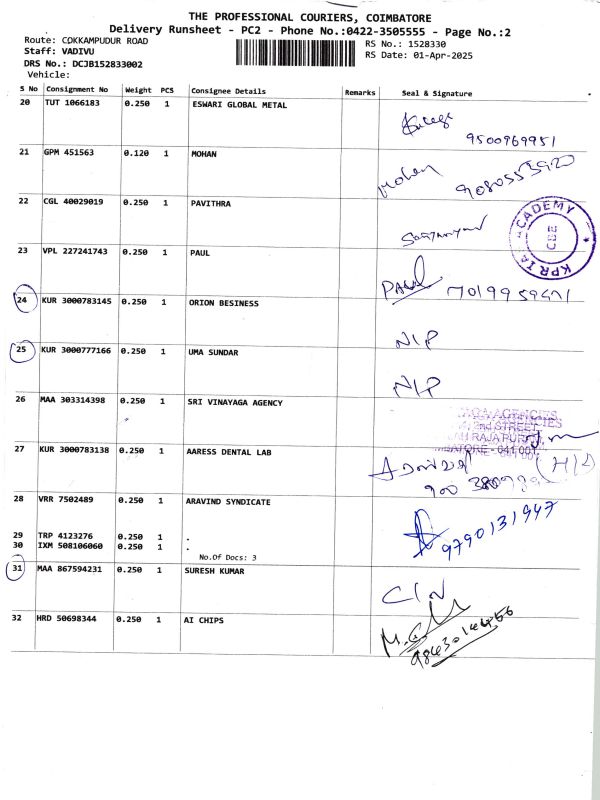 THE PROFESSIONAL COURIERS, COIMBATORE
Delivery Runsheet - PC2 - Phone No.:0422-3505555 - Page No.:2
Route: COKKAMPUDUR ROAD
RS No.: 1528330
Staff: VADIVU
RS Date: 01-Apr-2025
DRS No.: DCJB152833002
Vehicle:
S No Consignment No Weight PCS Consignee Details Remarks Seal & Signature
20 TUT 1066183 0.250 1 ESWARI GLOBAL METAL
9500969951
21 GPM 451563 0.120 1 MOHAN
Mohan 9080553920
22 CGL 40029019 0.250 1 PAVITHRA
KPR IA ACADEMY
CBE
23 VPL 227241743 0.250 1 PAUL
PAUL 7019959471
24 KUR 3000783145 0.250 1 ORION BESINESS
N/P
25 KUR 3000777166 0.250 1 UMA SUNDAR
N/P
26 MAA 303314398 0.250 1 SRI VINAYAGA AGENCY
AGENCIES
2nd STREET
RAJAPURA
27 KUR 3000783138 0.250 1 AARESS DENTAL LAB
28 VRR 7502489 0.250 1 ARAVIND SYNDICATE
9790131947
29 TRP 4123276 0.250 1 .
30 IXM 508106060 0.250 1 .
No.Of Docs: 3
31 MAA 867594231 0.250 1 SURESH KUMAR
C/N
32 HRD 50698344 0.250 1 AI CHIPS